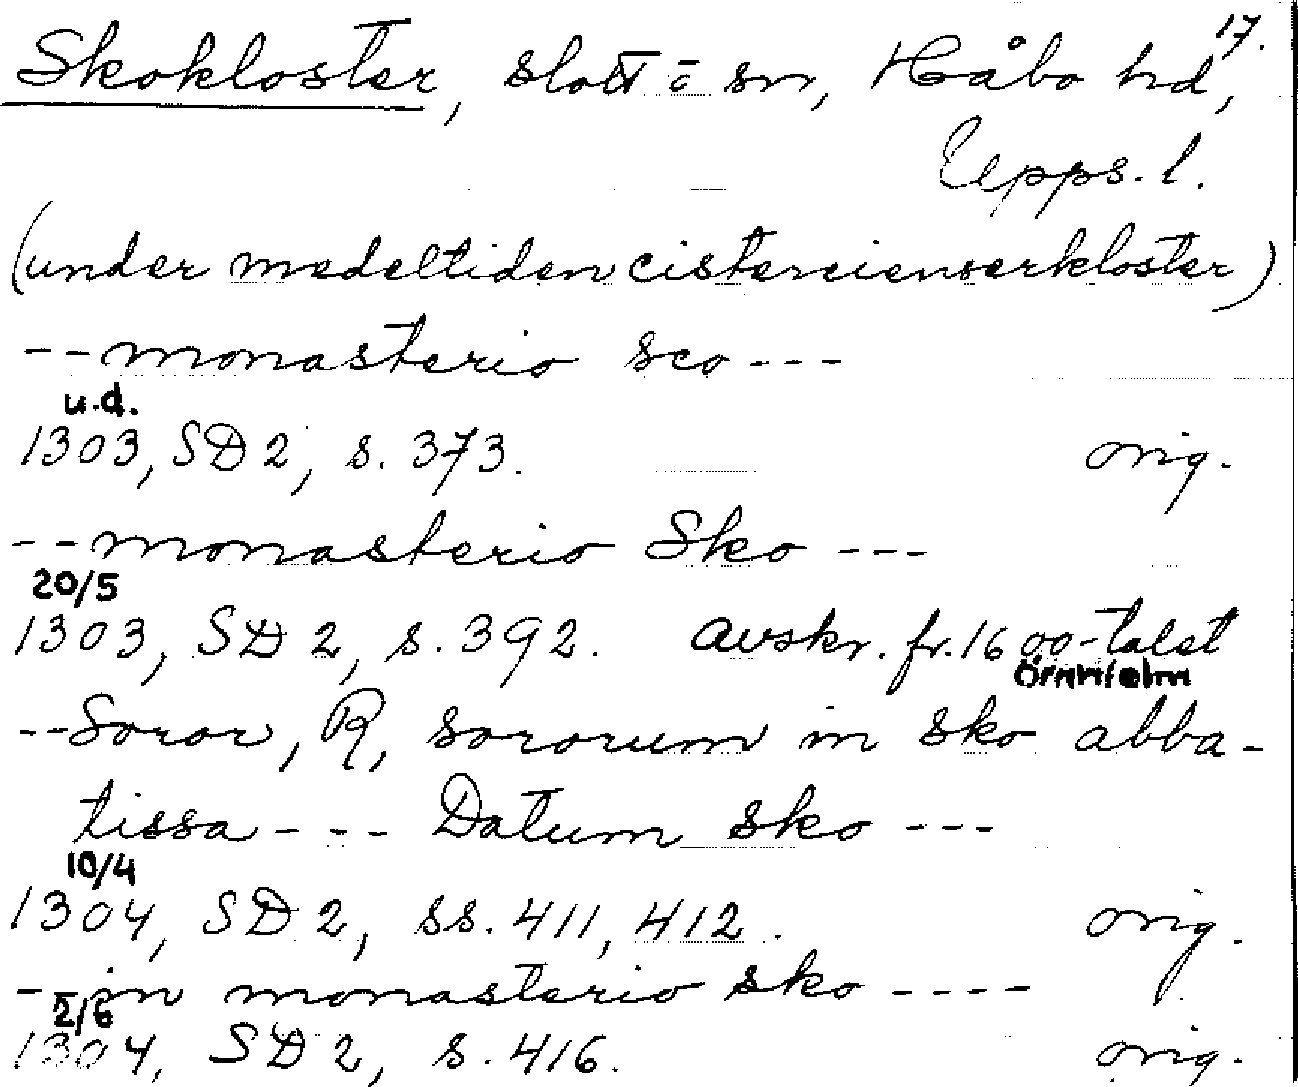 17.
Skokloster, slott o sn, Håbo hd,
Upps. l.
(under medeltiden cistercienserkloster)
-- monasterio sco ---
u.d.
1303, SD 2, s. 373. orig.
-- monasterio Sko ---
20/5
1303, SD 2, s. 392. Avskr. fr. 1600-talet
Örnhielm
-- Soror, R, sororum in sko abba-
tissa --- Datum sko ---
10/4
1304, SD 2, ss. 411, 412. orig.
-- in monasterio sko ----
2/6
1304, SD 2, s. 416. orig.